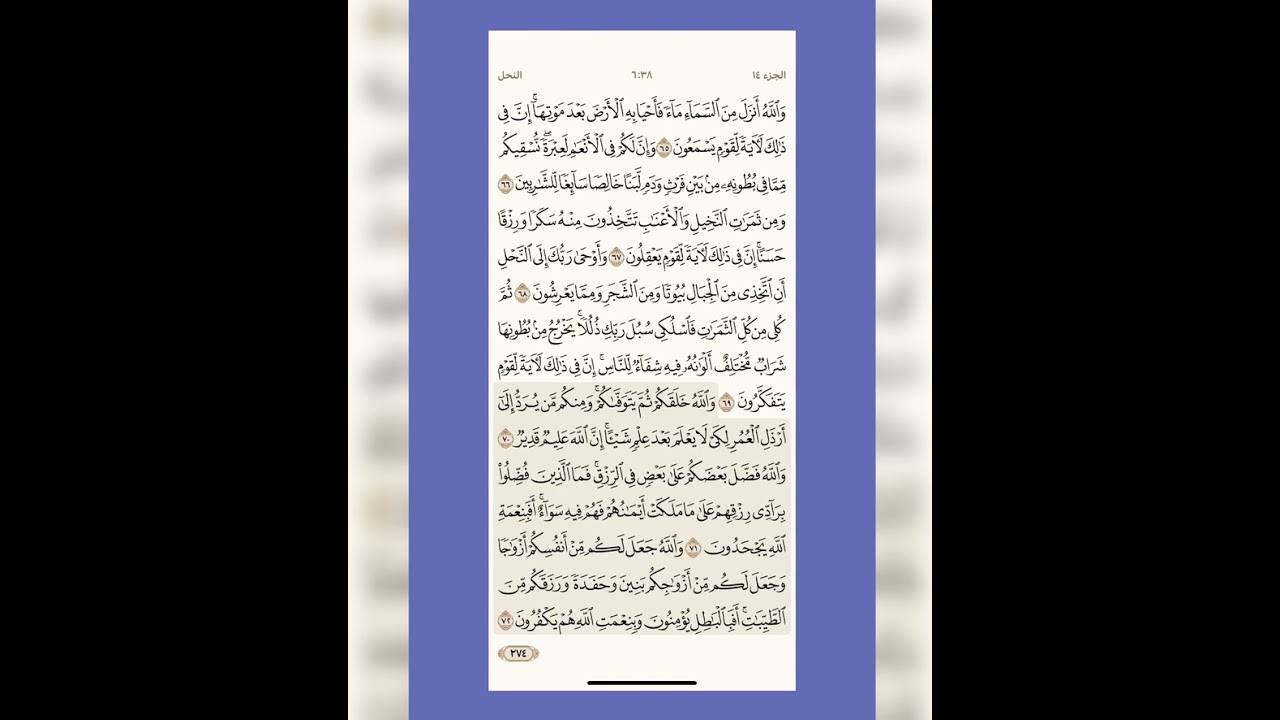 الجزء ١٤ ٦:٣٨ النحل
وَٱللَّهُ أَنزَلَ مِنَ ٱلسَّمَآءِ مَآءً فَأَحْيَا بِهِ ٱلْأَرْضَ بَعْدَ مَوْتِهَآ ۚ إِنَّ فِى
ذَٰلِكَ لَـَٔايَةً لِّقَوْمٍ يَسْمَعُونَ ٦٥ وَإِنَّ لَكُمْ فِى ٱلْأَنْعَٰمِ لَعِبْرَةً ۖ نُّسْقِيكُم
مِّمَّا فِى بُطُونِهِۦ مِنۢ بَيْنِ فَرْثٍ وَدَمٍ لَّبَنًا خَالِصًا سَآئِغًا لِّلشَّٰرِبِينَ ٦٦
وَمِن ثَمَرَٰتِ ٱلنَّخِيلِ وَٱلْأَعْنَٰبِ تَتَّخِذُونَ مِنْهُ سَكَرًا وَرِزْقًا
حَسَنًا ۗ إِنَّ فِى ذَٰلِكَ لَـَٔايَةً لِّقَوْمٍ يَعْقِلُونَ ٦٧ وَأَوْحَىٰ رَبُّكَ إِلَى ٱلنَّحْلِ
أَنِ ٱتَّخِذِى مِنَ ٱلْجِبَالِ بُيُوتًا وَمِنَ ٱلشَّجَرِ وَمِمَّا يَعْرِشُونَ ٦٨ ثُمَّ
كُلِى مِن كُلِّ ٱلثَّمَرَٰتِ فَٱسْلُكِى سُبُلَ رَبِّكِ ذُلُلًا ۚ يَخْرُجُ مِنۢ بُطُونِهَا
شَرَابٌ مُّخْتَلِفٌ أَلْوَٰنُهُۥ فِيهِ شِفَآءٌ لِّلنَّاسِ ۗ إِنَّ فِى ذَٰلِكَ لَـَٔايَةً لِّقَوْمٍ
يَتَفَكَّرُونَ ٦٩ وَٱللَّهُ خَلَقَكُمْ ثُمَّ يَتَوَفَّىٰكُمْ ۚ وَمِنكُم مَّن يُرَدُّ إِلَىٰٓ
أَرْذَلِ ٱلْعُمُرِ لِكَىْ لَا يَعْلَمَ بَعْدَ عِلْمٍ شَيْـًٔا ۚ إِنَّ ٱللَّهَ عَلِيمٌ قَدِيرٌ ٧٠
وَٱللَّهُ فَضَّلَ بَعْضَكُمْ عَلَىٰ بَعْضٍ فِى ٱلرِّزْقِ ۚ فَمَا ٱلَّذِينَ فُضِّلُوا۟
بِرَآدِّى رِزْقِهِمْ عَلَىٰ مَا مَلَكَتْ أَيْمَٰنُهُمْ فَهُمْ فِيهِ سَوَآءٌ ۚ أَفَبِنِعْمَةِ
ٱللَّهِ يَجْحَدُونَ ٧١ وَٱللَّهُ جَعَلَ لَكُم مِّنْ أَنفُسِكُمْ أَزْوَٰجًا
وَجَعَلَ لَكُم مِّنْ أَزْوَٰجِكُم بَنِينَ وَحَفَدَةً وَرَزَقَكُم مِّنَ
ٱلطَّيِّبَٰتِ ۚ أَفَبِٱلْبَٰطِلِ يُؤْمِنُونَ وَبِنِعْمَتِ ٱللَّهِ هُمْ يَكْفُرُونَ ٧٢
٢٧٤